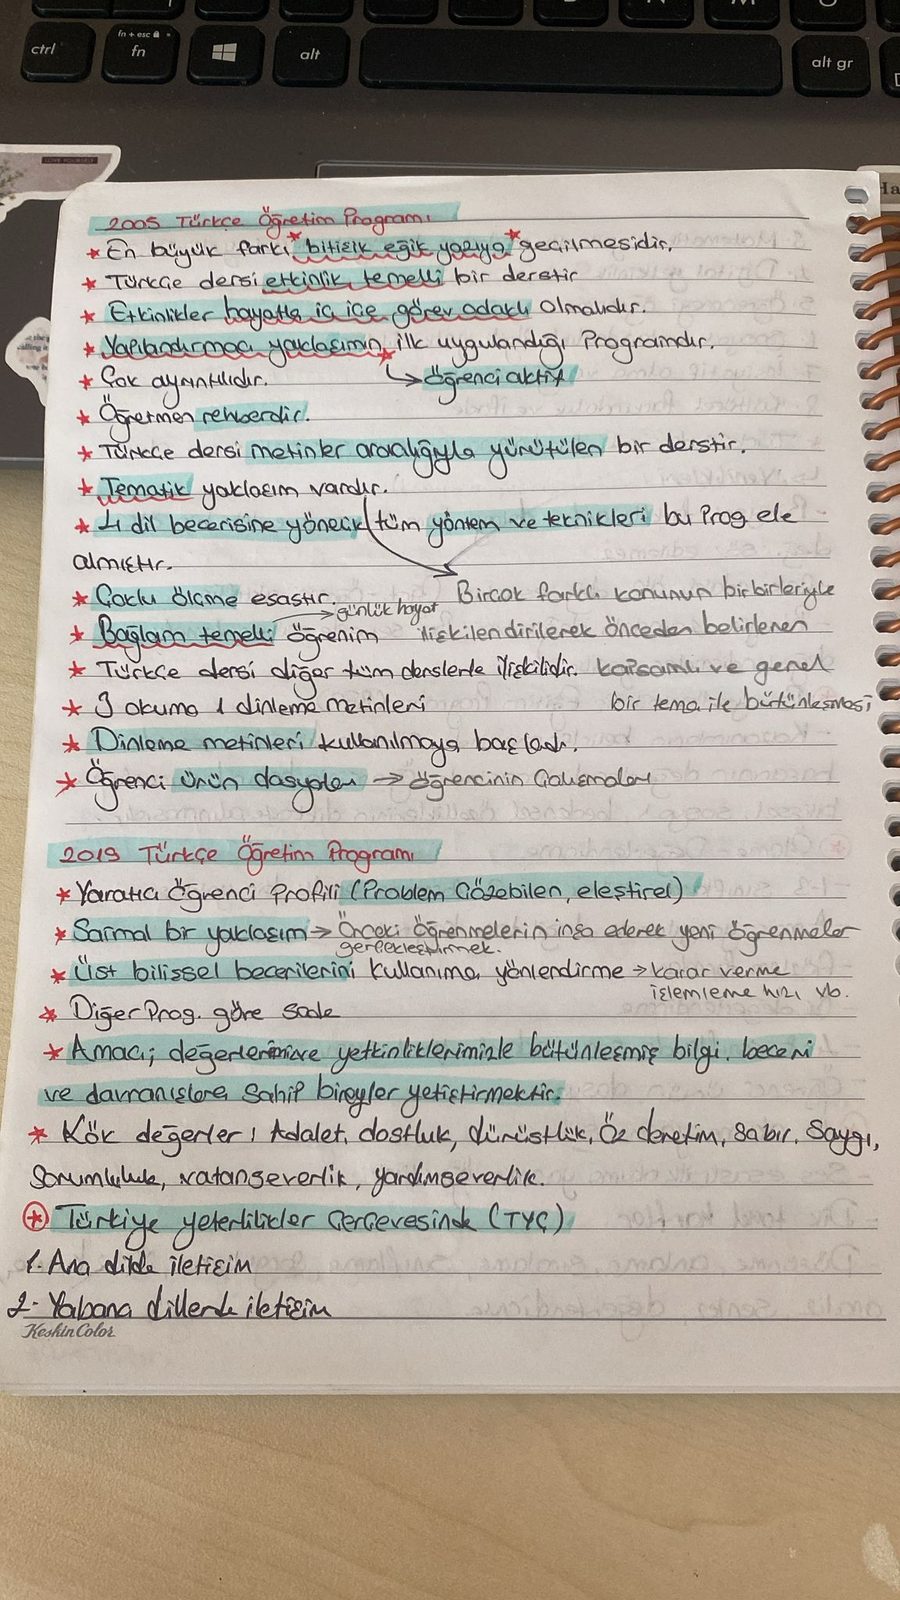 ctrl
fn + esc
fn
alt
alt gr
LOVE YOURSELF
2005 Türkçe Öğretim Programı
* En büyük farkı bitişik eğik yazıya geçilmesidir.
* Türkçe dersi etkinlik temelli bir derstir
* Etkinlikler hayatla iç içe görev odaklı olmalıdır.
* Yapılandırmacı yaklaşımın ilk uygulandığı Programdır.
* Çok ayrıntılıdır.
→ öğrenci aktif
* Öğretmen rehberdir.
* Türkçe dersi metinler aracılığıyla yürütülen bir derstir.
* Tematik yaklaşım vardır.
* 4 dil becerisine yönelik tüm yöntem ve teknikleri bu Prog ele
almıştır.
Birçok farklı konunun birbirleriyle
ilişkilendirilerek önceden belirlenen
kapsamlı ve genel
bir tema ile bütünleşmesi
* Çoklu ölçme esastır.
→ günlük hayat
* Bağlam temelli öğrenim
* Türkçe dersi diğer tüm derslerle ilişkilidir.
* 3 okuma 1 dinleme metinleri
* Dinleme metinleri kullanılmaya başladı.
* Öğrenci ürün dosyaları → öğrencinin Çalışmaları
2019 Türkçe Öğretim Programı
* Yaratıcı Öğrenci Profili (Problem Çözebilen, eleştirel)
* Sarmal bir yaklaşım → Önceki öğrenmelerin inşa ederek yeni öğrenmeler
gerçekleştirmek.
* Üst bilişsel becerilerini kullanıma yönlendirme → karar verme
işlemleme hızı vb.
* Diğer Prog. göre sade
* Amacı; değerlerimizve yetkinliklerimizle bütünleşmiş bilgi, beceri
ve davranışlara Sahip bireyler yetiştirmektir.
* Kök değerler; Adalet, dostluk, dürüstlük, Öz denetim, sabır, Saygı,
Sorumluluk, vatanseverlik, yardımseverlik.
* Türkiye yeterlilikler Çerçevesinde (TYÇ)
1. Ana dilde iletişim
2- Yabancı dillerde iletişim
Keskin Color